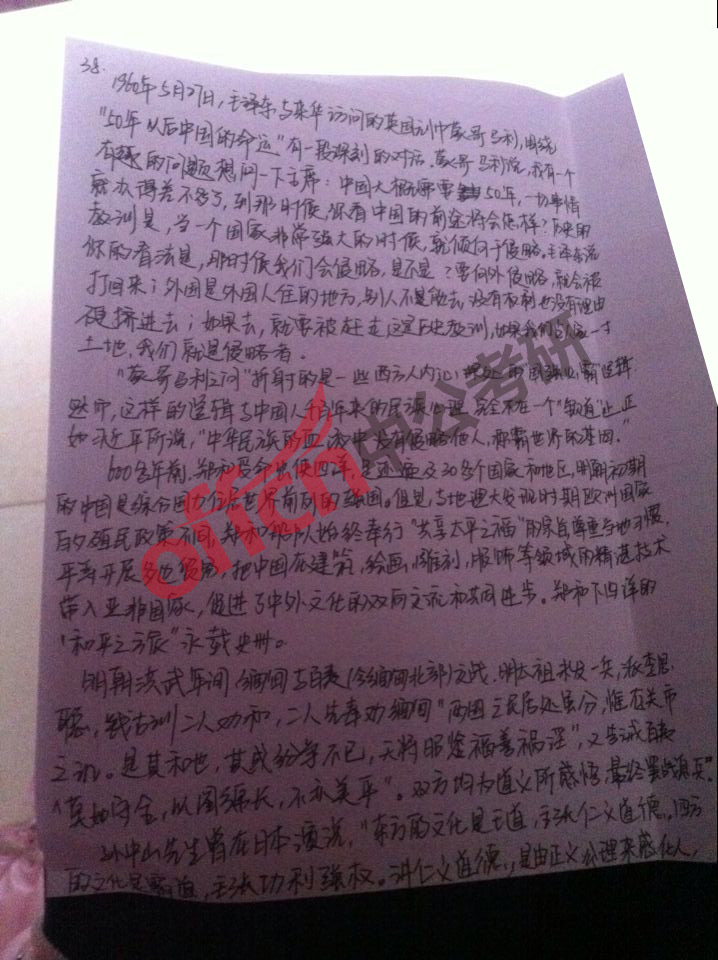 38.
1960年5月27日,毛泽东与来华访问的英国元帅蒙哥马利,围绕
"50年以后中国的命运"有一段深刻的对话。蒙哥马利说,我有一个
有趣的问题想问一下主席:中国大概需要50年,一切事情
就办得差不多了,到那时候,你看中国的前途将会怎样?历史的
教训是,当一个国家非常强大的时候,就倾向于侵略。毛泽东说
你的看法是,那时候我们会侵略,是不是?要向外侵略,就会被
打回来;外国是外国人住的地方,别人不能去,没有权利也没有理由
硬挤进去;如果去,就要被赶走,这是历史教训,如果我们占人家一寸
土地,我们就是侵略者。
"蒙哥马利之问"折射的是一些西方人内心 国强必霸逻辑
然而,这样的逻辑与中国人千百年来的民族心理完全不在一个"频道"上,正
如习近平所说,"中华民族的血液中没有侵略他人,称霸世界的基因。"
600多年前,郑和受命出使西洋,足迹遍及30多个国家和地区,明朝初期
的中国是综合国力位居世界前列的强国。但是,与地理大发现时期欧洲国家
的殖民政策不同,郑和船队始终奉行"共享太平之福"的宗旨,尊重当地习惯,
平等开展多边贸易,把中国在建筑,绘画,雕刻,服饰等领域的精湛技术
带入亚非国家,促进了中外文化的双向交流和共同进步。郑和下西洋的
"和平之旅"永载史册。
明朝洪武年间,缅国与百夷(今缅甸北部)交战,明太祖未发一兵,派李思
聪,钱古训二人劝和,二人先奉劝缅国"两国之民居处虽分,惟在关市
之讥。是其和也,其或纷争不已,天将昭鉴福善祸淫",又告诫百夷
"莫如守全,以图绵长,不亦美乎"。双方均为道义所感悟,最终罢战息兵。
孙中山先生曾在日本演说,"东方的文化是王道,主张仁义道德。西方
的文化是霸道,主张功利强权。讲仁义道德,是由正义公理来感化人,
offcn中公考研